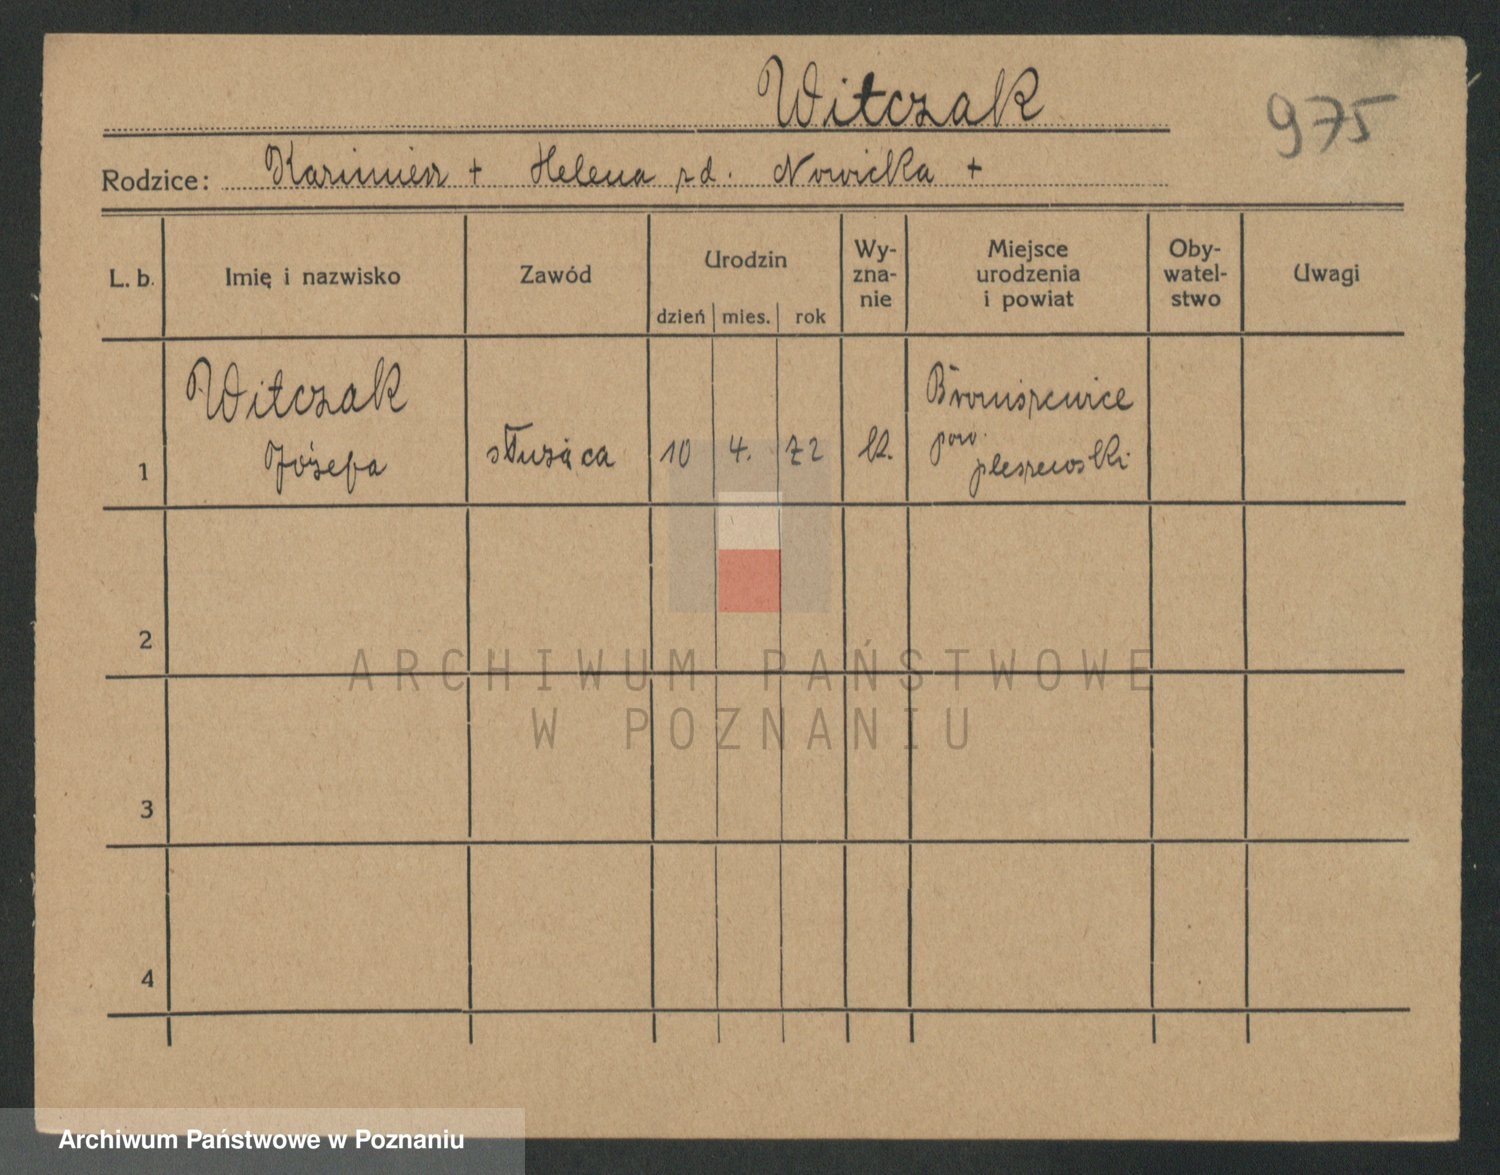 Witczak
975
Rodzice: Kazimierz + Helena zd. Nowicka +
L. b. Imię i nazwisko Zawód Urodzin dzień mies. rok Wy-zna-nie Miejsce urodzenia i powiat Oby-watel-stwo Uwagi
Witczak
Józefa
1 służąca 10 4. 22 rk.
Broniszewice
pow.
pleszewski
2
3
4
ARCHIWUM PAŃSTWOWE
W POZNANIU
Archiwum Państwowe w Poznaniu